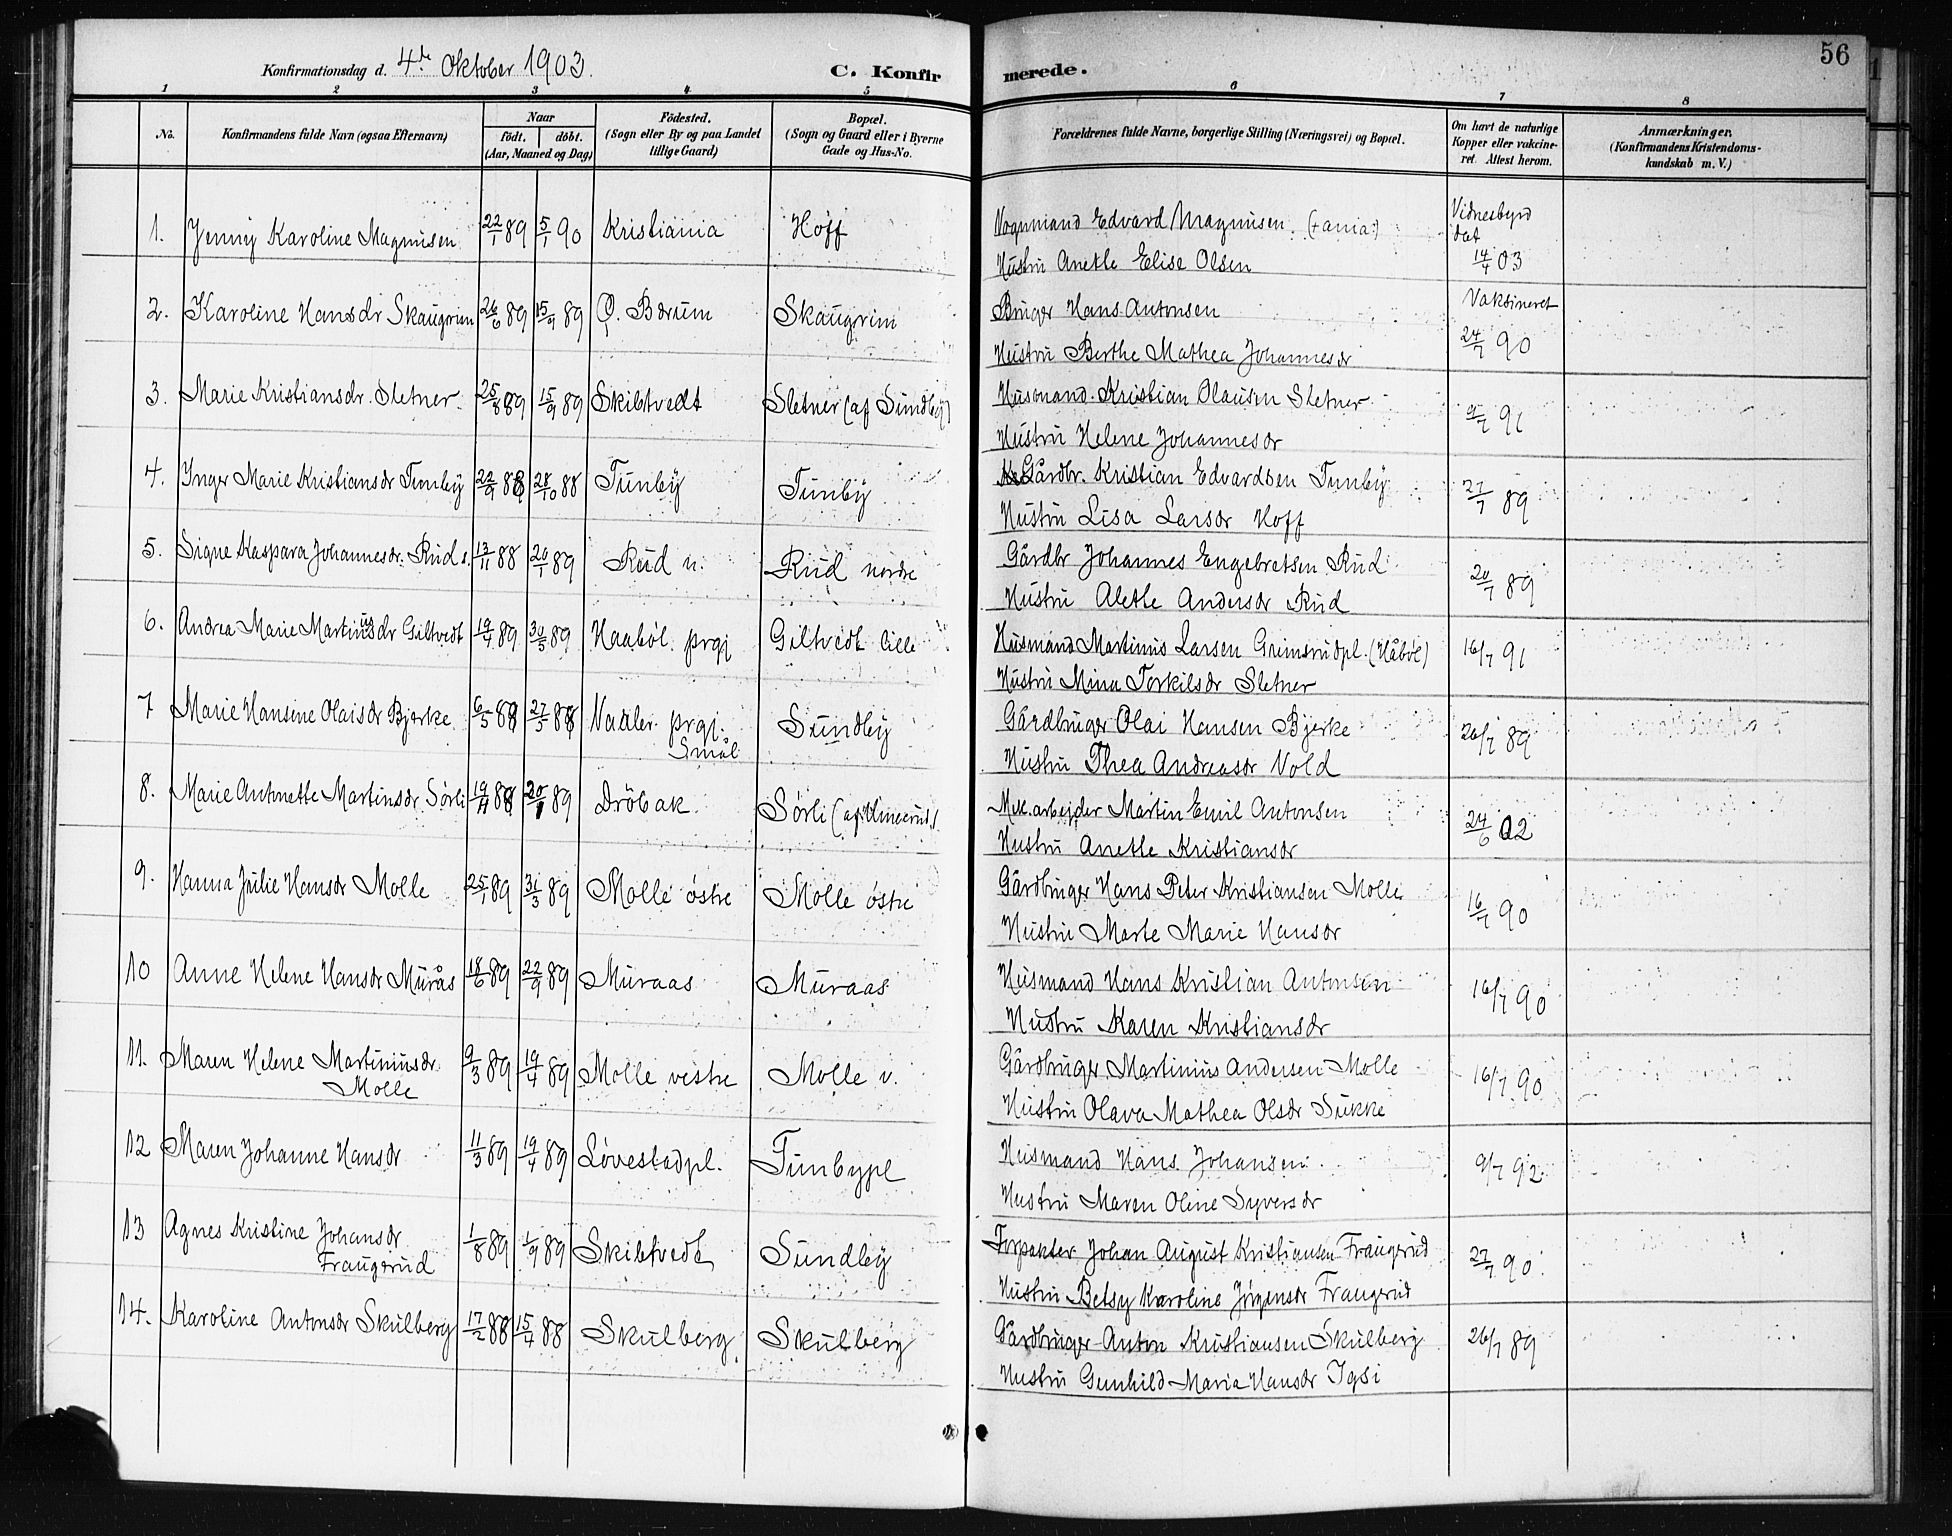 56
Konfirmationsdag d. 4de Oktober 1903.
C. Konfirmerede.
1 2 3 4 5 6 7 8
No. Konfirmandens fulde Navn (ogsaa Efternavn) Naar født. døbt. (Aar, Maaned og Dag) Fødested. (Sogn eller By og paa Landet tillige Gaard) Bopæl. (Sogn og Gaard eller i Byerne Gade og Hus-No. Forældrenes fulde Navne, borgerlige Stilling (Næringsvei) og Bopæl. Om havt de naturlige Kopper eller vakcineret. Attest herom. Anmærkninger. (Konfirmandens Kristendomskundskab m. V.)
1. Jenny Karoline Magnusen 22/1 89 5/1 90 Kristiania Hoff Vognmand Edvard Magnusen Vidnesbyrd dat 14/4 03
Hustru Anette Elise Olsen
2. Karoline Hansdr Skaugrim 26/6 89 15/9 89 Ø. Bærum Skaugrim Bruger Hans Antonsen Vaksineret 24/7 90
Hustru Berthe Mathea Johannesdr
3. Marie Kristiansdr. Sletner. 25/8 89 15/9 89 Skibtvedt Sletner (af Sundby) Husmand Kristian Olausen Sletner 9/7 91
Hustru Helene Johannesdr
4. Inger Marie Kristiansdr Tunby 22/9 88 28/10 88 Tunby Tunby Gårdbr. Kristian Edvardsen Tunby 27/7 89
Hustru Lisa Larsdr Hoff
5. Signe Kaspara Johannesdr. Rud n. 13/11 88 20/1 89 Rud n. Rud nordre Gårdbr Johannes Engebretsen Rud 20/7 89
Hustru Alette Andersdr Rud
6. Andrea Marie Martinusdr Giltvedt 19/4 89 30/5 89 Haabøl prgj Giltvedt lille Husmand Martinus Larsen Grimsrudpl. (Håbøl) 16/7 91
Hustru Mina Torkilsdr Sletner
7 Marie Hansine Olaisdr Bjerke 6/5 88 27/5 88 Vaaler prgj. Smål Sundby Gårdbruger Olai Hansen Bjerke 26/7 89
Hustru Thea Andreasdr Vold
8. Marie Antonette Martinsdr Sørli 19/11 88 20/1 89 Drøbak Sørli Mek. arbejder Martin Emil Antonsen 24/6 02
Hustru Anette Kristiansdr
9. Hanna Julie Hansdr Molle 25/1 89 31/3 89 Molle østre Molle østre Gårdbruger Hans Peter Kristiansen Molle 16/7 90
Hustru Marte Marie Hansdr
10 Anne Helene Hansdr Murås 18/6 89 22/9 89 Muraas Muraas Husmand Hans Kristian Antonsen 16/7 90
Hustru Karen Kristiansdr
11. Maren Helene Martinusdr. 9/3 89 19/4 89 Molle vestre Molle v. Gårdbruger Martinius Andersen Molle 16/7 90
Molle Hustru Olava Mathea Olsdr Sukke
12 Maren Johanne Hansdr 11/3 89 19/4 89 Løvestadpl. Tunbypl Husmand Hans Johansen 9/7 92
Hustru Maren Oline Syversdr
13 Agnes Kristine Johansdr 1/8 89 1/9 89 Skibtvedt Sundby Forpakter Johan August Kristiansen Fraugerud 27/7 90
Fraugerud Hustru Betsy Karoline Jørgensdr Fraugerud
14. Karoline Antonsdr Skulberg 17/2 88 15/4 88 Skulberg Skulberg Gårdbruger Anton Kristiansen Skulberg 26/7 89
Hustru Gunhild Maria Hansdr Igsi